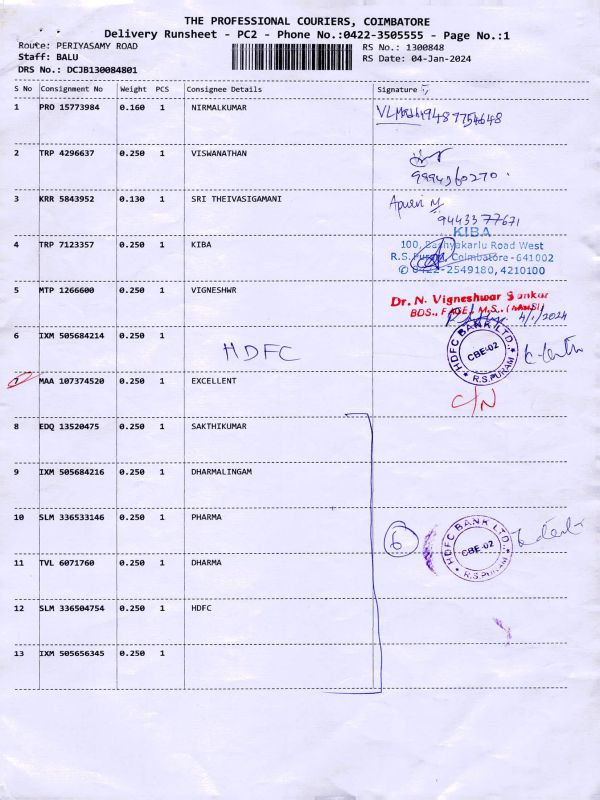 THE PROFESSIONAL COURIERS, COIMBATORE
Delivery Runsheet - PC2 - Phone No.:0422-3505555 - Page No.:1
Route: PERIYASAMY ROAD
RS No.: 1300848
Staff: BALU
RS Date: 04-Jan-2024
DRS No.: DCJB130084801
S No Consignment No Weight PCS Consignee Details Signature
1 PRO 15773984 0.160 1 NIRMALKUMAR
2 TRP 4296637 0.250 1 VISWANATHAN
3 KRR 5843952 0.130 1 SRI THEIVASIGAMANI
9443377671
4 TRP 7123357 0.250 1 KIBA
KIBA
100, Bashyakarlu Road West
R.S. Puram, Coimbatore - 641 002
✆ 0422-2549180, 4210100
5 MTP 1266600 0.250 1 VIGNESHWR
Dr. N. Vigneshwar Sankar
BDS., FAGE., M.S.,
4/1/2024
6 IXM 505684214 0.250 1
HDFC
HDFC BANK LTD.,
CBE-02
R.S.PURAM
7 MAA 107374520 0.250 1 EXCELLENT
C/N
8 EDQ 13520475 0.250 1 SAKTHIKUMAR
9 IXM 505684216 0.250 1 DHARMALINGAM
10 SLM 336533146 0.250 1 PHARMA
6
HDFC BANK LTD.,
CBE-02
R.S.PURAM
11 TVL 6071760 0.250 1 DHARMA
12 SLM 336504754 0.250 1 HDFC
13 IXM 505656345 0.250 1